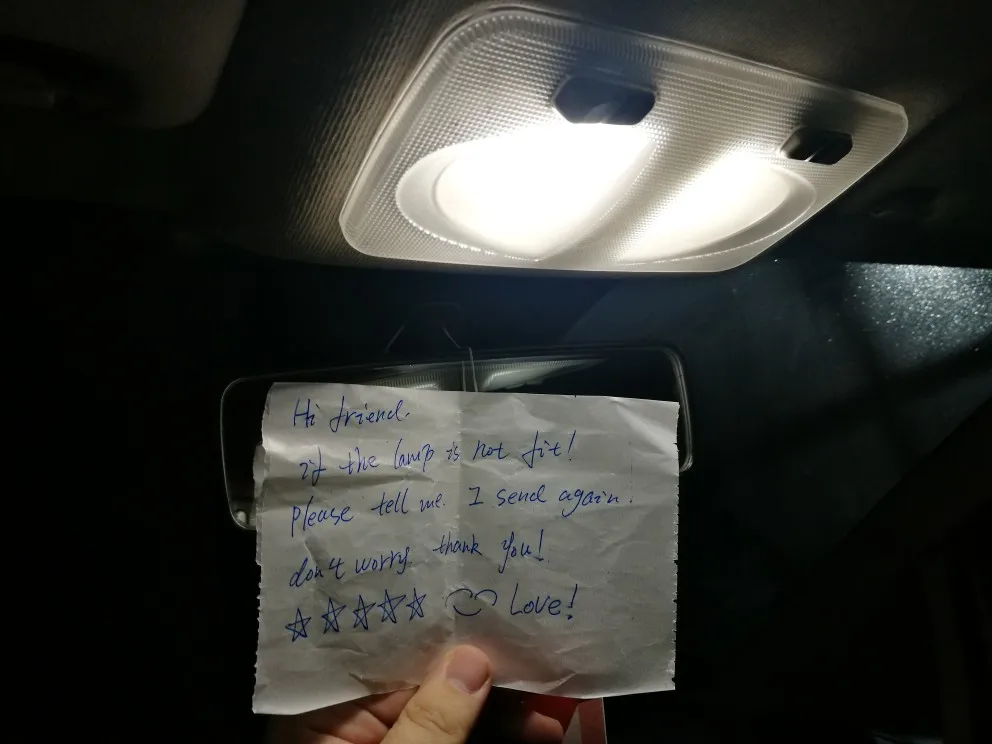 Hi friend.
if the lamp is not fit!
please tell me. I send again.
don't worry thank you!
☆☆☆☆☆ Love!